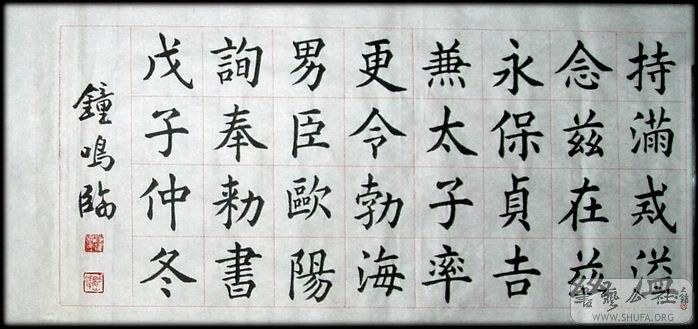 持滿戒溢
念茲在茲
永保貞吉
兼太子率
更令勃海
男臣歐陽
詢奉勅書
戊子仲冬
鐘鳴臨
書藝公社
WWW.SHUFA.ORG